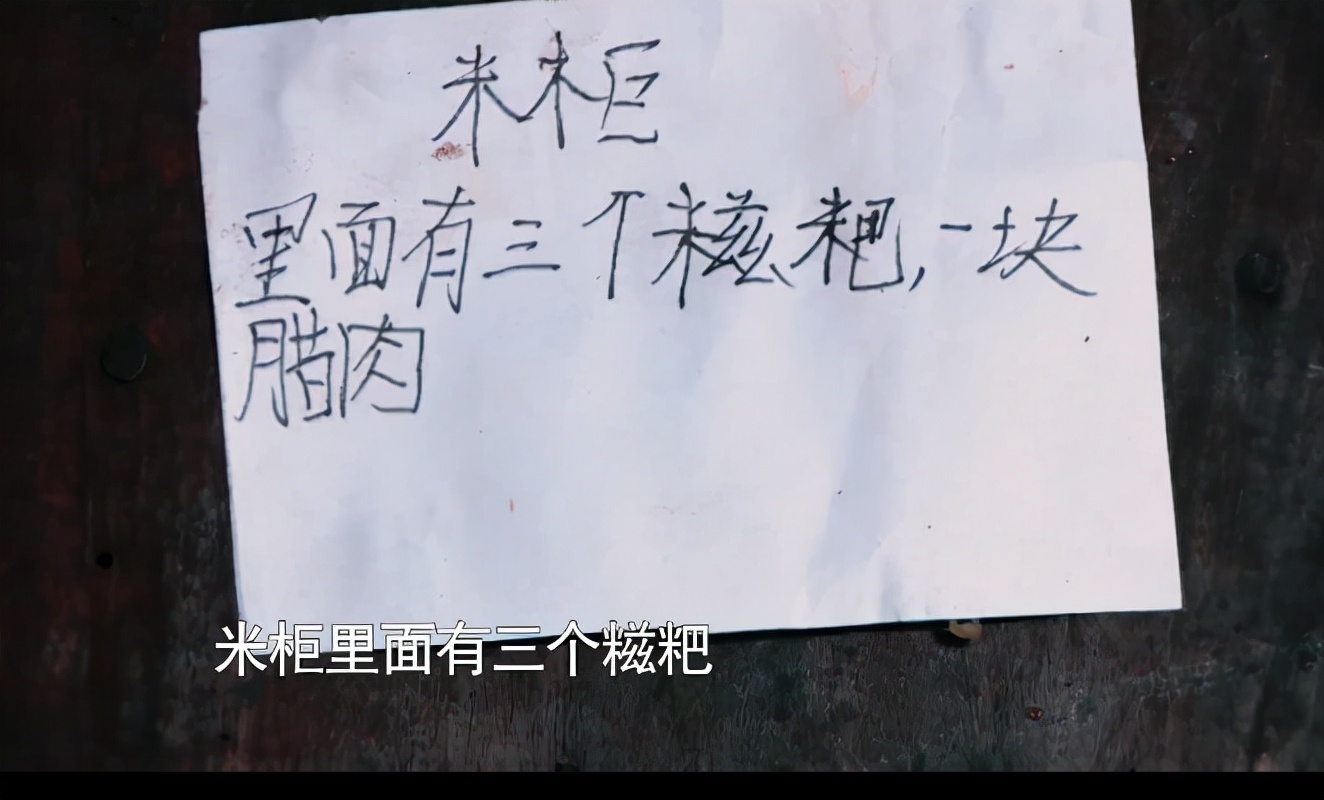 米柜
里面有三个糍粑，一块
腊肉
米柜里面有三个糍粑